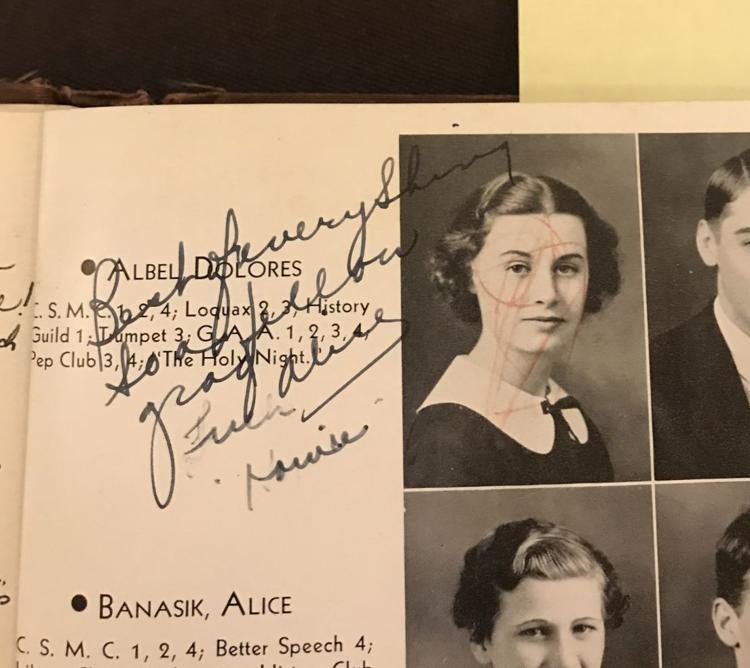 Best of everything
to a fellow
grad Alice
ALBEL, DOLORES
C. S. M. C. 1, 2, 4; Loquax 2, 3; History
Guild 1; Trumpet 3; G. A. A. 1, 2, 3, 4;
Pep Club 3, 4; "The Holy Night."
BANASIK, ALICE
C. S. M. C. 1, 2, 4; Better Speech 4;
Club